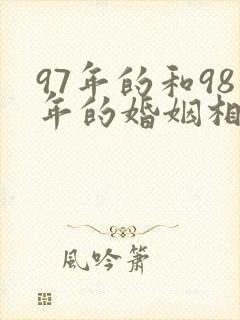 97年的和98
年的婚姻相
風吟簫